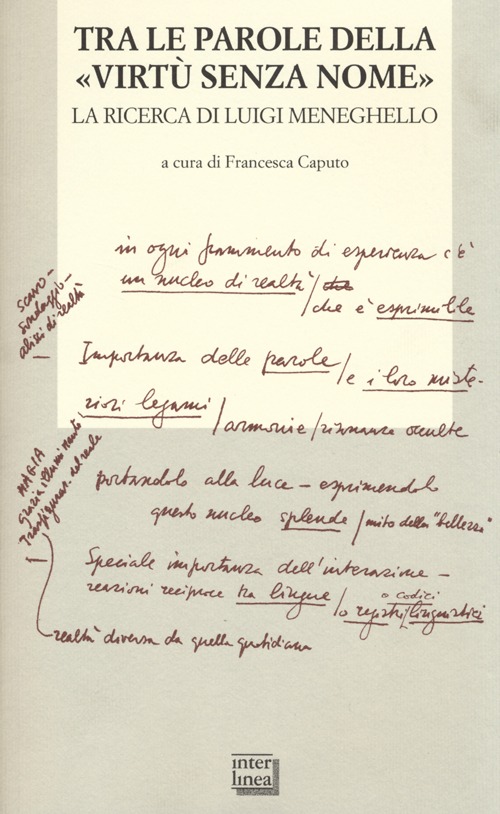 TRA LE PAROLE DELLA
«VIRTÙ SENZA NOME»
LA RICERCA DI LUIGI MENEGHELLO
a cura di Francesca Caputo
in ogni frammento di esperienza c'è
un nucleo di realtà / che
/ che è esprimibile
SCAVO –
sondaggio –
alisi di realtà
Importanza delle parole / e i loro miste-
riosi legami / armonie / risonanze occulte
MAGIA
Grazia, illuminante,
Trasfiguraz. del reale
portandolo alla luce – esprimendolo
questo nucleo splende / mito della "bellezza"
Speciale importanza dell'interazione –
reazioni reciproche tra lingue / o registri linguistici
o codici
realtà diversa da quella quotidiana
inter
linea